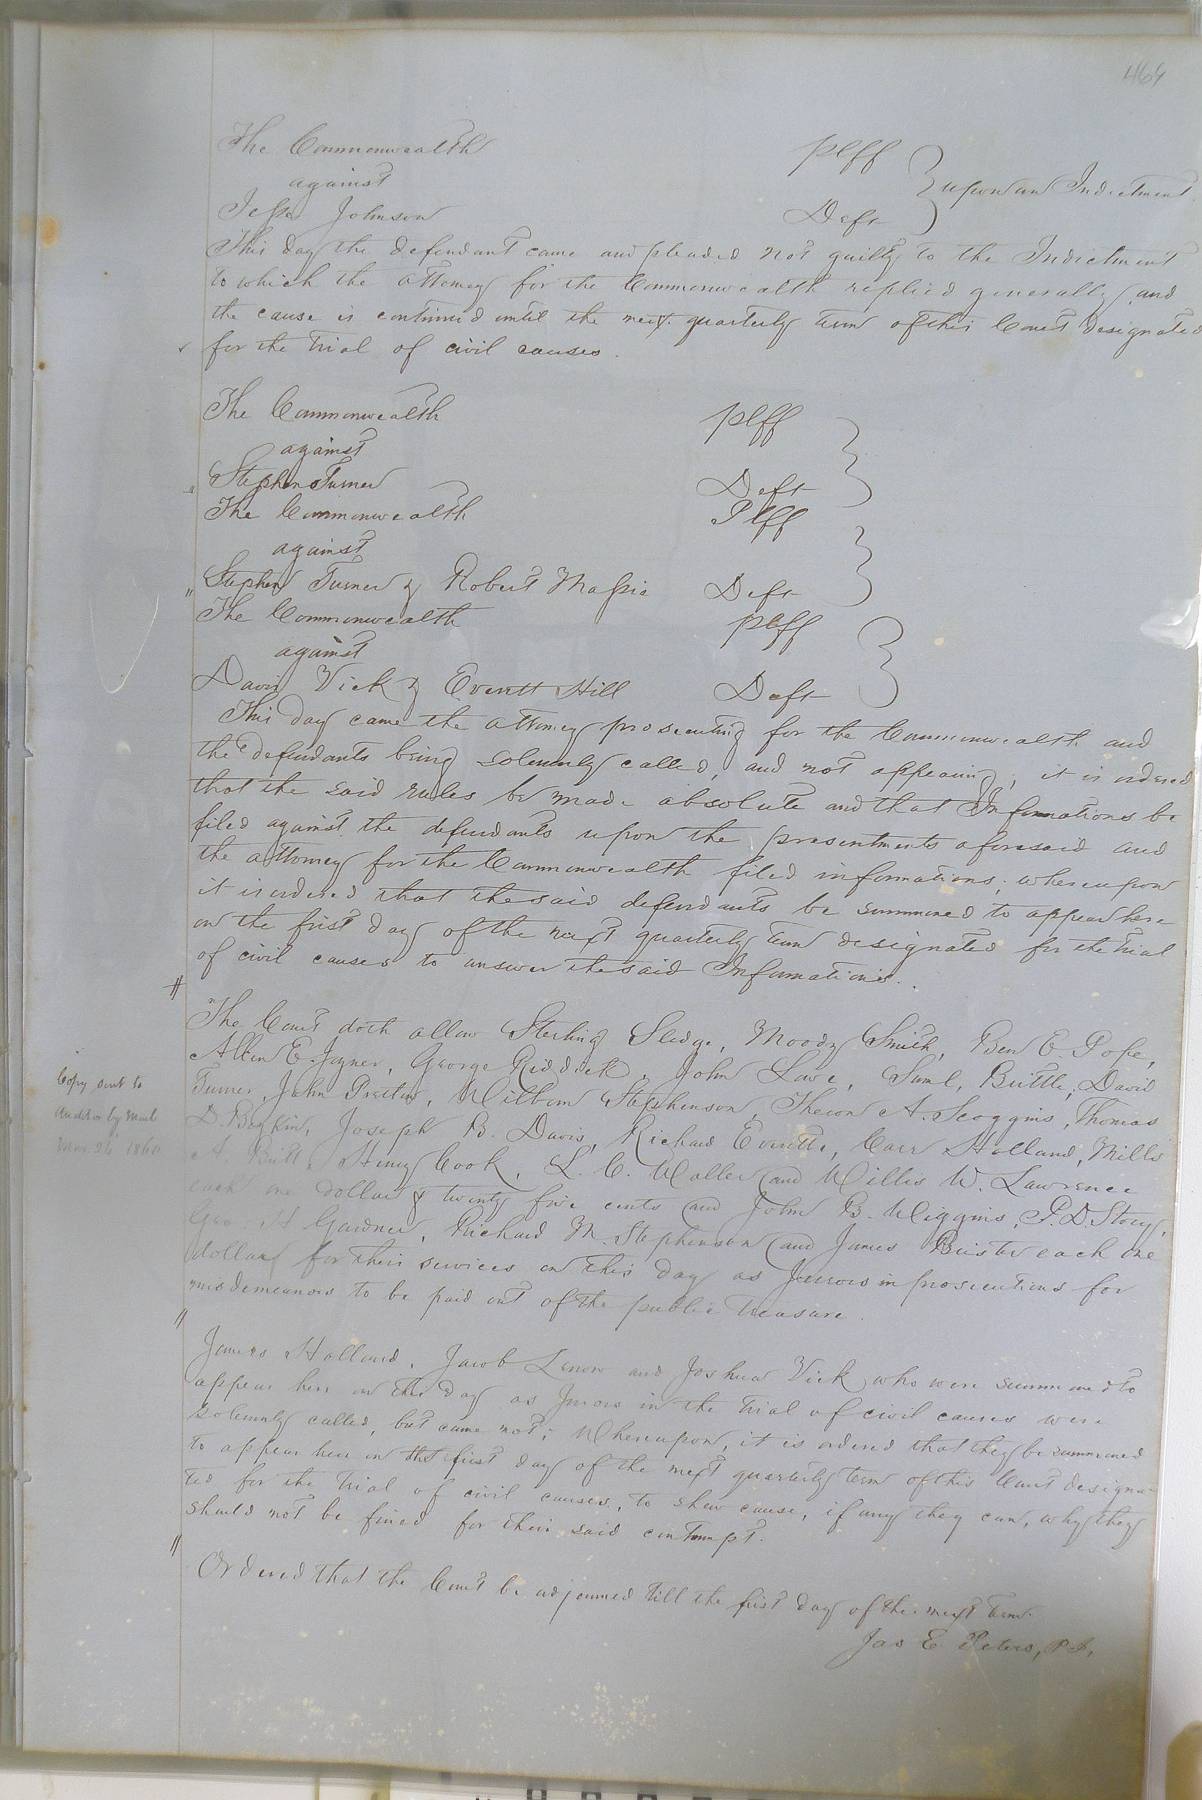 469
The Commonwealth plff
against
upon an Indictment
Jesse Johnson Deft
This day the defendant came and pleaded not guilty to the Indictment
to which the attorney for the Commonwealth replied generally, and
the cause is continued until the next quarterly term of this Court designated
for the trial of civil causes.
The Commonwealth plff
against
Stephen Turner Deft
The Commonwealth Plff
against
Stephen Turner & Robert Massie Deft
The Commonwealth plff
against
David Vick & Everett Hill Deft
This day came the attorney prosecuting for the Commonwealth and
the defendants being solemnly called, and not appearing, it is ordered
that the said rules be made absolute and that Informations be
filed against the defendants upon the presentments aforesaid and
the attorney for the Commonwealth filed informations; whereupon
it is ordered that the said defendants be summoned to appear here
on the first day of the next quarterly term designated for the trial
of civil causes to answer the said Informations.
The Court doth allow Sterling Sledge, Moody Smith, Ben E. Pope,
Allen E. Joyner, George Riddick, John Love, Saml. Brittle, David
Turner, John Pretlow, Wilborn Stephenson, Theron A. Scoggins, Thomas
D. Barkin, Joseph B. Davis, Richard Everette, Carr Holland, Mills
A. Britt, Henry Cook, L. C. Waller and Willis W. Lawrence
each one dollar & twenty five cents and John B. Wiggins, P. D. Story,
Geo H Gardner, Richard M. Stephenson and James Brister each one
dollar for their services on this day as Jurors in prosecutions for
misdemeanors to be paid out of the public treasure.
Copy sent to
Auditor by mail
Nov. 26 1860
James Holland, Jacob Lenow and Joshua Vick who were summoned to
appear here on this day as Jurors in the trial of civil causes were
solemnly called, but came not; Whereupon, it is ordered that they be summoned
to appear here on the first day of the next quarterly term of this Court designa-
ted for the trial of civil causes, to shew cause, if any they can, why they
should not be fined for their said contempt.
Ordered that the Court be adjourned till the first day of the next term.
Jas E. Peters, P. J.